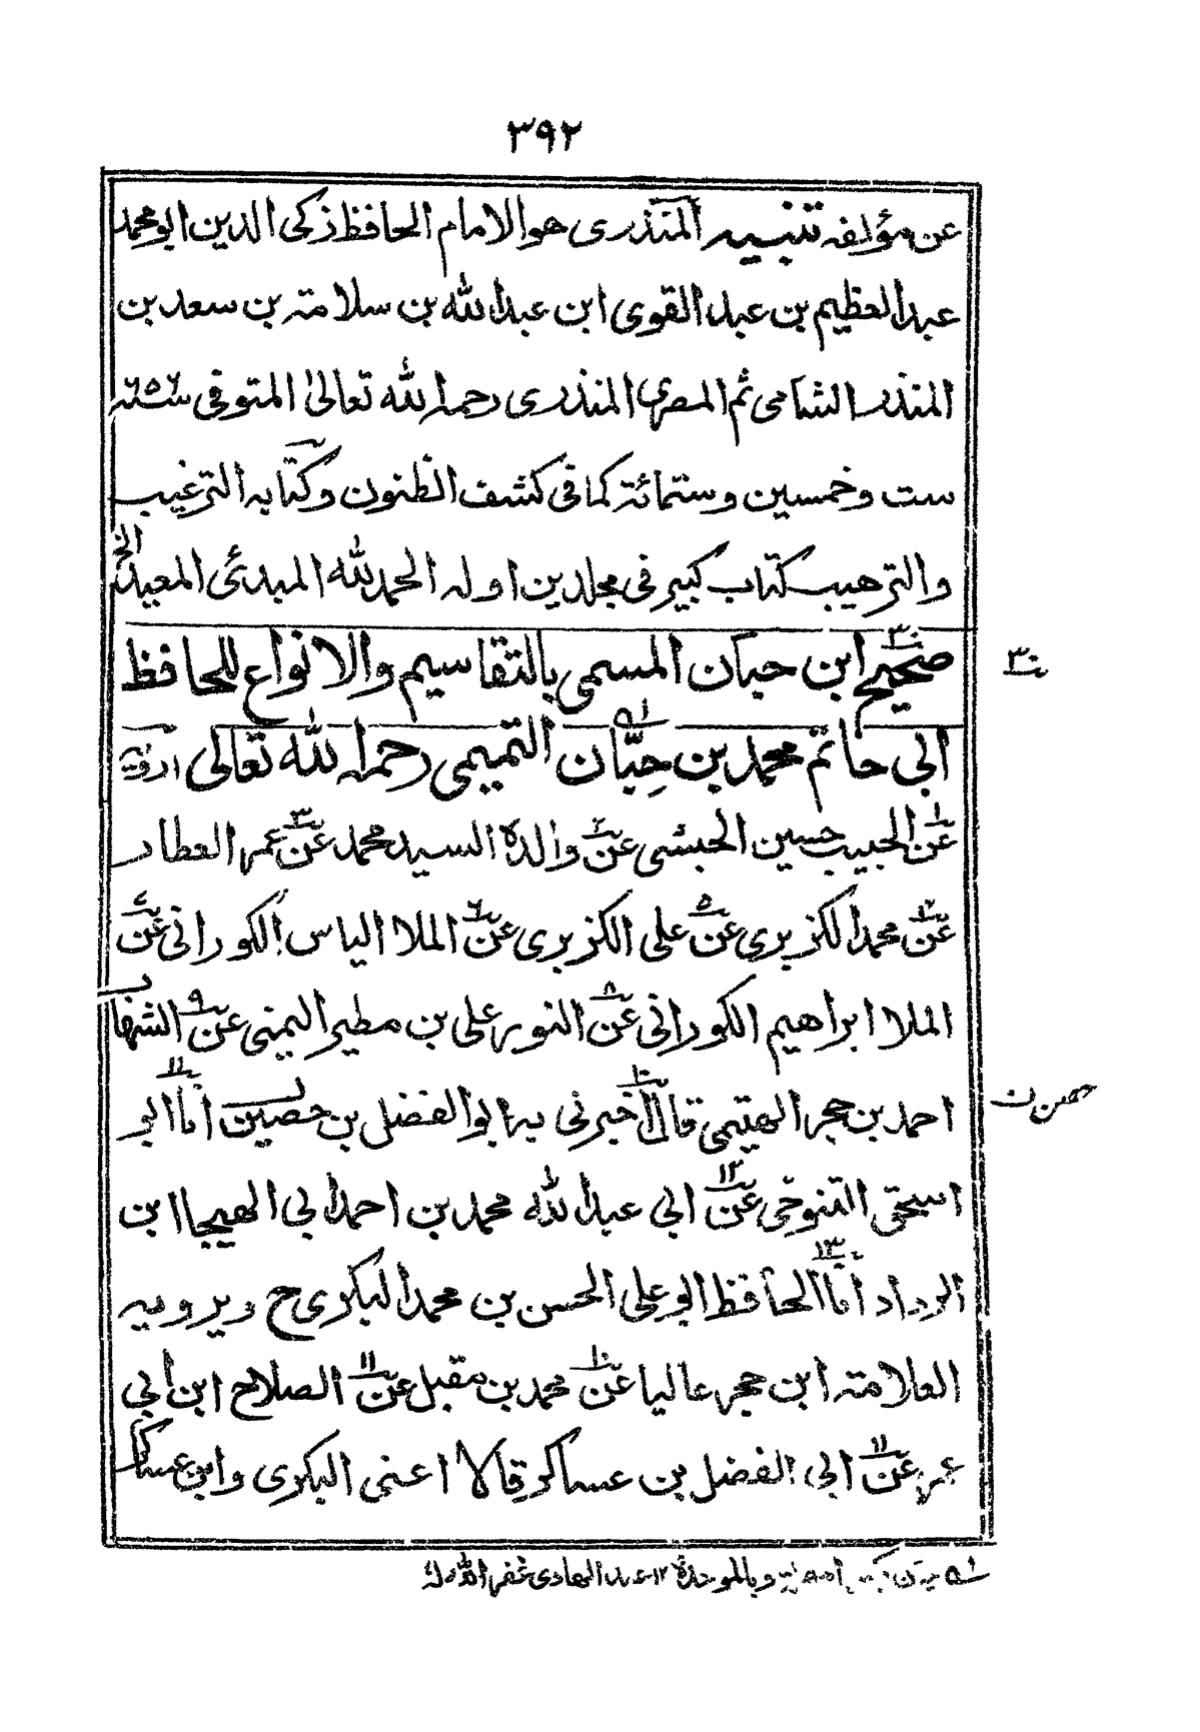 ٣٩٢
عن مؤلفه تنبيه المنذرى هو الامام الحافظ زكى الدين ابو محمد
عبد العظيم بن عبد القوى ابن عبد الله بن سلامته بن سعد بن
المنذر الشامى ثم المصرى المنذرى رحمه الله تعالىٰ المتوفى سنة ٦٥٦
ست وخمسين وستمائة كما فى كشف الظنون وكتابه الترغيب
والترهيب كتاب كبير فى مجلدين اوله الحمد لله المبدئ المعيد الخ
صحيح ابن حبان المسمى بالتقاسيم والانواع للحافظ
٣٠
ابى حاتم محمد بن حِبَّان التميمى رحمه الله تعالى ارويه
عن١ الحبيب حسين الحبشى عن٢ والده السيد محمد عن٣ عمر العطار
عن٤ محمد الكزبرى عن٥ على الكزبرى عن٦ الملا الياس الكورانى عن٧
الملا ابراهيم الكورانى عن٨ النور على بن مطير اليمنى عن٩ الشهاب
احمد بن حجر الهيتمى قال١٠ اخبرنى به ابو الفضل بن حصين انا١١ ابو
اسحق التنوخى عن١٢ ابى عبد الله محمد بن احمد ابى الهيجا ابن
الرداد انا١٣ الحافظ ابو على الحسن بن محمد البكرى ح ويرويه
العلامته ابن حجر عاليا عن١٠ محمد بن مقبل عن١١ الصلاح ابن ابى
عمر عن١٢ ابى الفضل بن عساكر قالا اعنى البكرى وابن عساكر
وبالموحدة ١٢ عبد الهادى غفر الله له